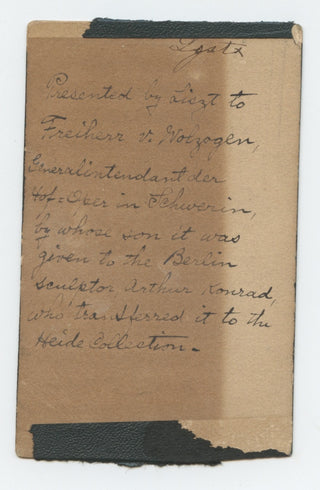 Presented by Liszt to
Freiherr v. Wolzogen,
Generalintendant der
Hof=Oper in Schwerin,
by whose son it was
given to the Berlin
sculptor Arthur Konrad,
who transferred it to the
Heide Collection.-